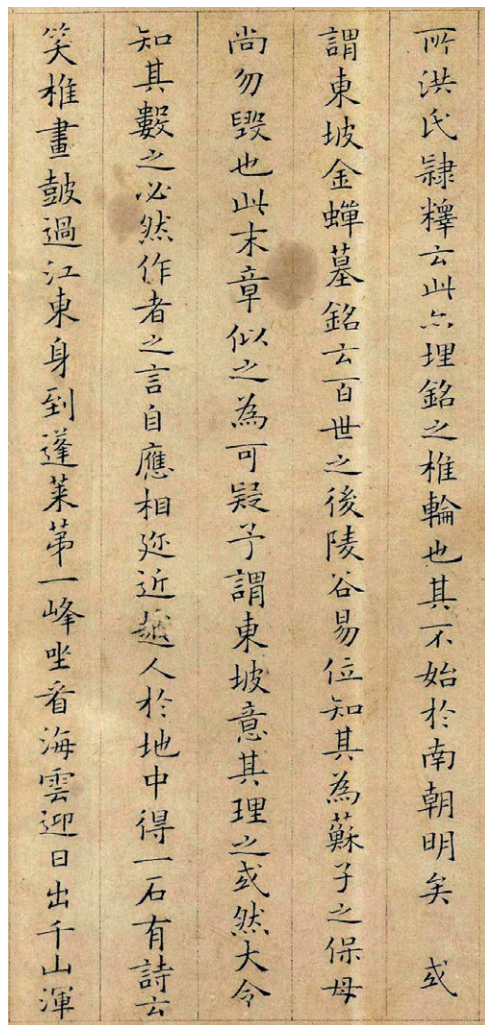 所洪氏隷釋云此亦埋銘之椎輪也其不始於南朝明矣 或
謂東坡金蟬墓銘云百世之後陵谷易位知其為蘇子之保母
尚勿毀也此末章似之為可疑予謂東坡意其理之或然大令
知其數之必然作者之言自應相近近越人於地中得一石有詩云
笑椎畫皷過江東身到蓬萊苐一峰坐看海雲迎日出千山渾